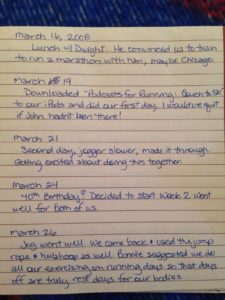 March 16, 2008
Lunch w/ Dwight. He convinced us to train
to run a marathon with him, maybe Chicago.
March 19
Downloaded "Podcasts for Running: Couch to 5k"
to our iPods and did our first day. I would've quit
if John hadn't been there!
March 21
Second day, jogged slower, made it through.
Getting excited about doing this together.
March 24
40th Birthday? Decided to start Week 2. Went
well for both of us.
March 26
Jog went well. We came back & used the jump
rope & hulahoop as well. Bonnie suggested we do
all our exercising on running days so that days
off are truly rest days for our bodies.